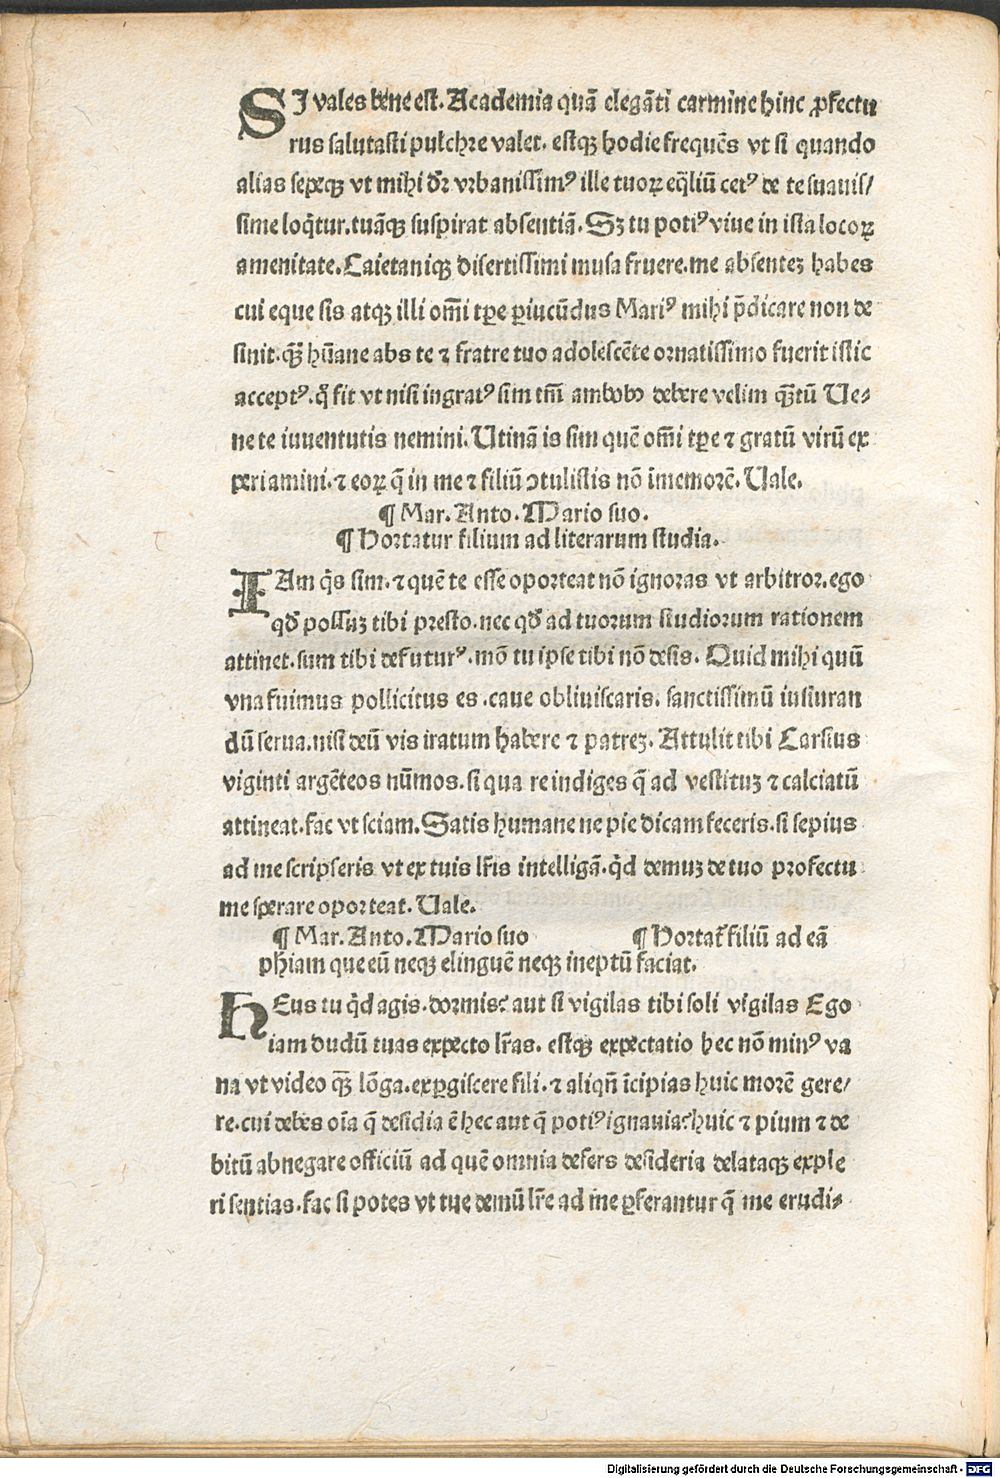 SI vales bene est. Academia quā elegāti carmine hinc ꝓfectu
rus salutasti pulchre valet. estqꝫ hodie frequēs vt si quando
alias sepeqꝫ vt mihi dr̄ vrbanissimꝰ ille tuoꝝ eq̄liū cetꝰ de te suauis/
sime loq̄tur. tuāqꝫ suspirat absentiā. Sꝫ tu potiꝰ viue in ista locoꝝ
amenitate. Caietaniqꝫ disertissimi musa fruere. me absenteꝫ habes
cui eque sis atqꝫ illi om̄i tꝑe ꝑiucūdus Mariꝰ mihi p̄dicare non de
sinit. qꝫ̄ hūane abs te ⁊ fratre tuo adolescēte ornatissimo fuerit istic
acceptꝰ. q̊ fit vt nisi ingratꝰ sim tm̄ ambobꝰ debere velim qꝫ̄tū Ue⸗
ne te iuuentutis nemini. Utinā is sim quē om̄i tꝑe ⁊ gratū virū ex
periamini. ⁊ eoꝝ q̄ in me ⁊ filiū ↄtulistis nō īmemorē. Uale.
¶ Mar. Anto. Mario suo.
¶ Hortatur filium ad literarum studia.
IAm q̄s sim. ⁊ quē te esse oporteat nō ignoras vt arbitror. ego
qd̄ possuꝫ tibi presto. nec qd̄ ad tuorum studiorum rationem
attinet. sum tibi defuturꝰ. mō tu ipse tibi nō desis. Quid mihi quū
vna fuimus pollicitus es. caue obliuiscaris. sanctissimū iusiuran
dū serua. nisi deū vis iratum habere ⁊ patreꝫ. Attulit tibi Carsius
viginti argēteos nūmos. si qua re indiges q̄ ad vestituꝫ ⁊ calciatū
attineat. fac vt sciam. Satis humane ne pie dicam feceris. si sepius
ad me scripseris vt ex tuis lr̄is intelligā. qd̄ demuꝫ de tuo profectu
me sperare oporteat. Uale.
¶ Mar. Anto. Mario suo ¶ Hortat̄ filiū ad eā
ph̄iam que eū neqꝫ elinguē neqꝫ ineptū faciat.
HEus tu qd̄ agis. dormis? aut si vigilas tibi soli vigilas Ego
iam dudū tuas expecto lr̄as. estqꝫ expectatio hec nō minꝰ va
na vt video qꝫ̄ lōga. exꝑgiscere fili. ⁊ aliqn̄ īcipias huic morē gere/
re. cui debes oīa q̄ desidia ē hec aut q̄ potiꝰ ignauia? huic ⁊ pium ⁊ de
bitū abnegare officiū ad quē omnia defers desideria delataqꝫ exple
ri sentias. fac si potes vt tue demū lr̄e ad me ꝑferantur q̄ me erudi⸗
Digitalisierung gefördert durch die Deutsche Forschungsgemeinschaft - DFG